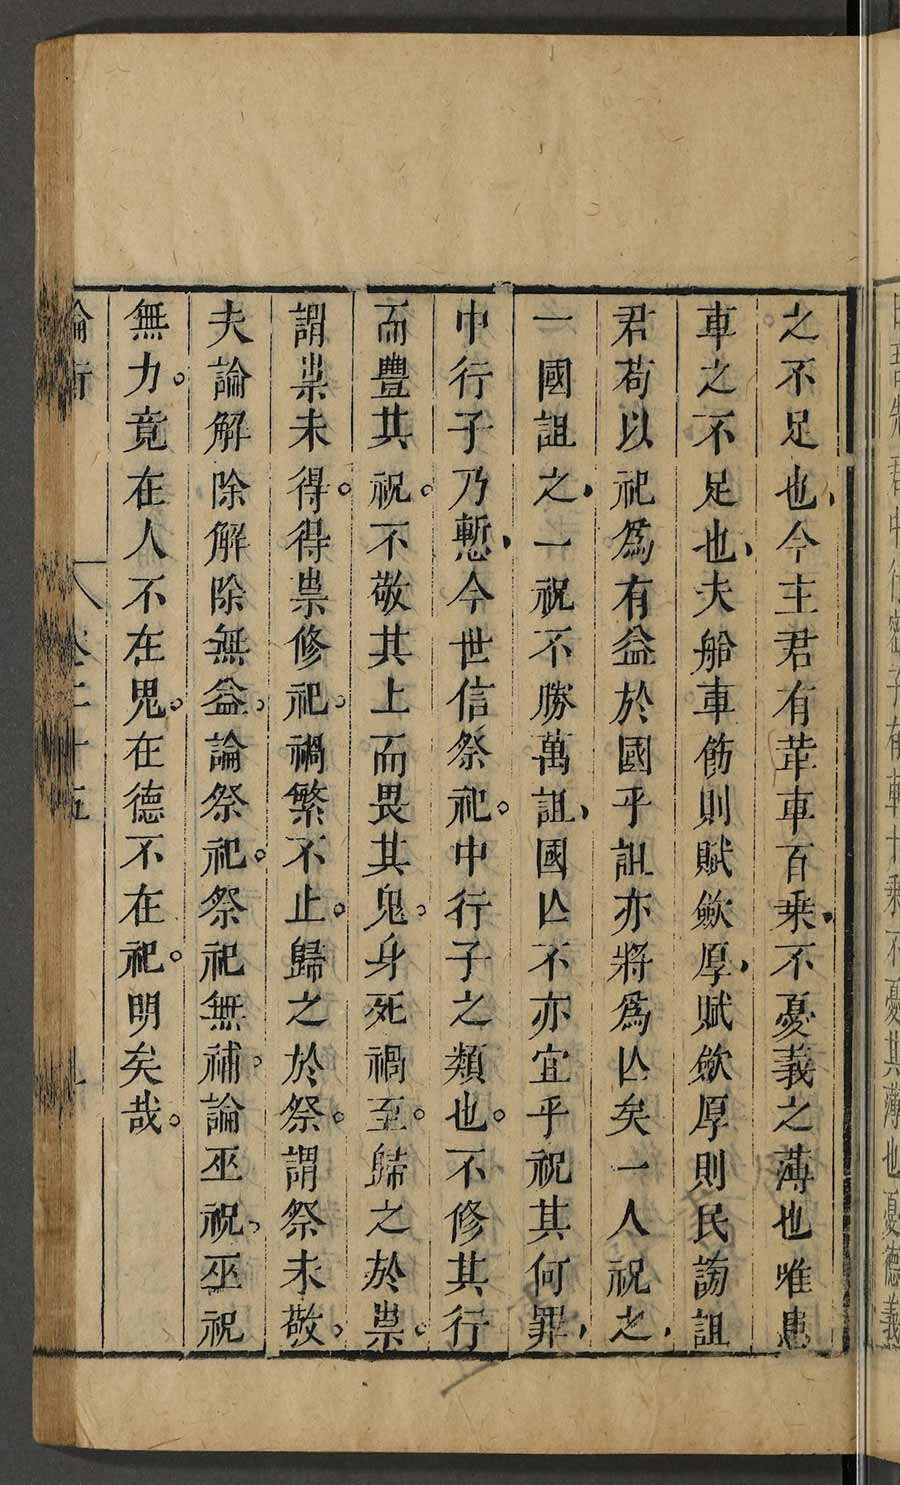 之不足也今主君有革車百乘不憂義之薄也唯患
車之不足也夫船車飭則賦斂厚賦斂厚則民謗詛
君苟以祀爲有益於國乎詛亦將爲亾矣一人祝之
一國詛之一祝不勝萬詛國亾不亦宜乎祝其何罪
中行子乃慙今世信祭祀。中行子之類也。不修其行
而豐其祝。不敬其上而畏其鬼。身死禍至。歸之於祟。
謂祟未得。得祟修祀。禍繁不止。歸之於祭。謂祭未敬。
夫論解除解除無益。論祭祀。祭祀無補。論巫祝。巫祝
無力。竟在人不在鬼。在德不在祀。明矣哉。
論衡 卷二十五